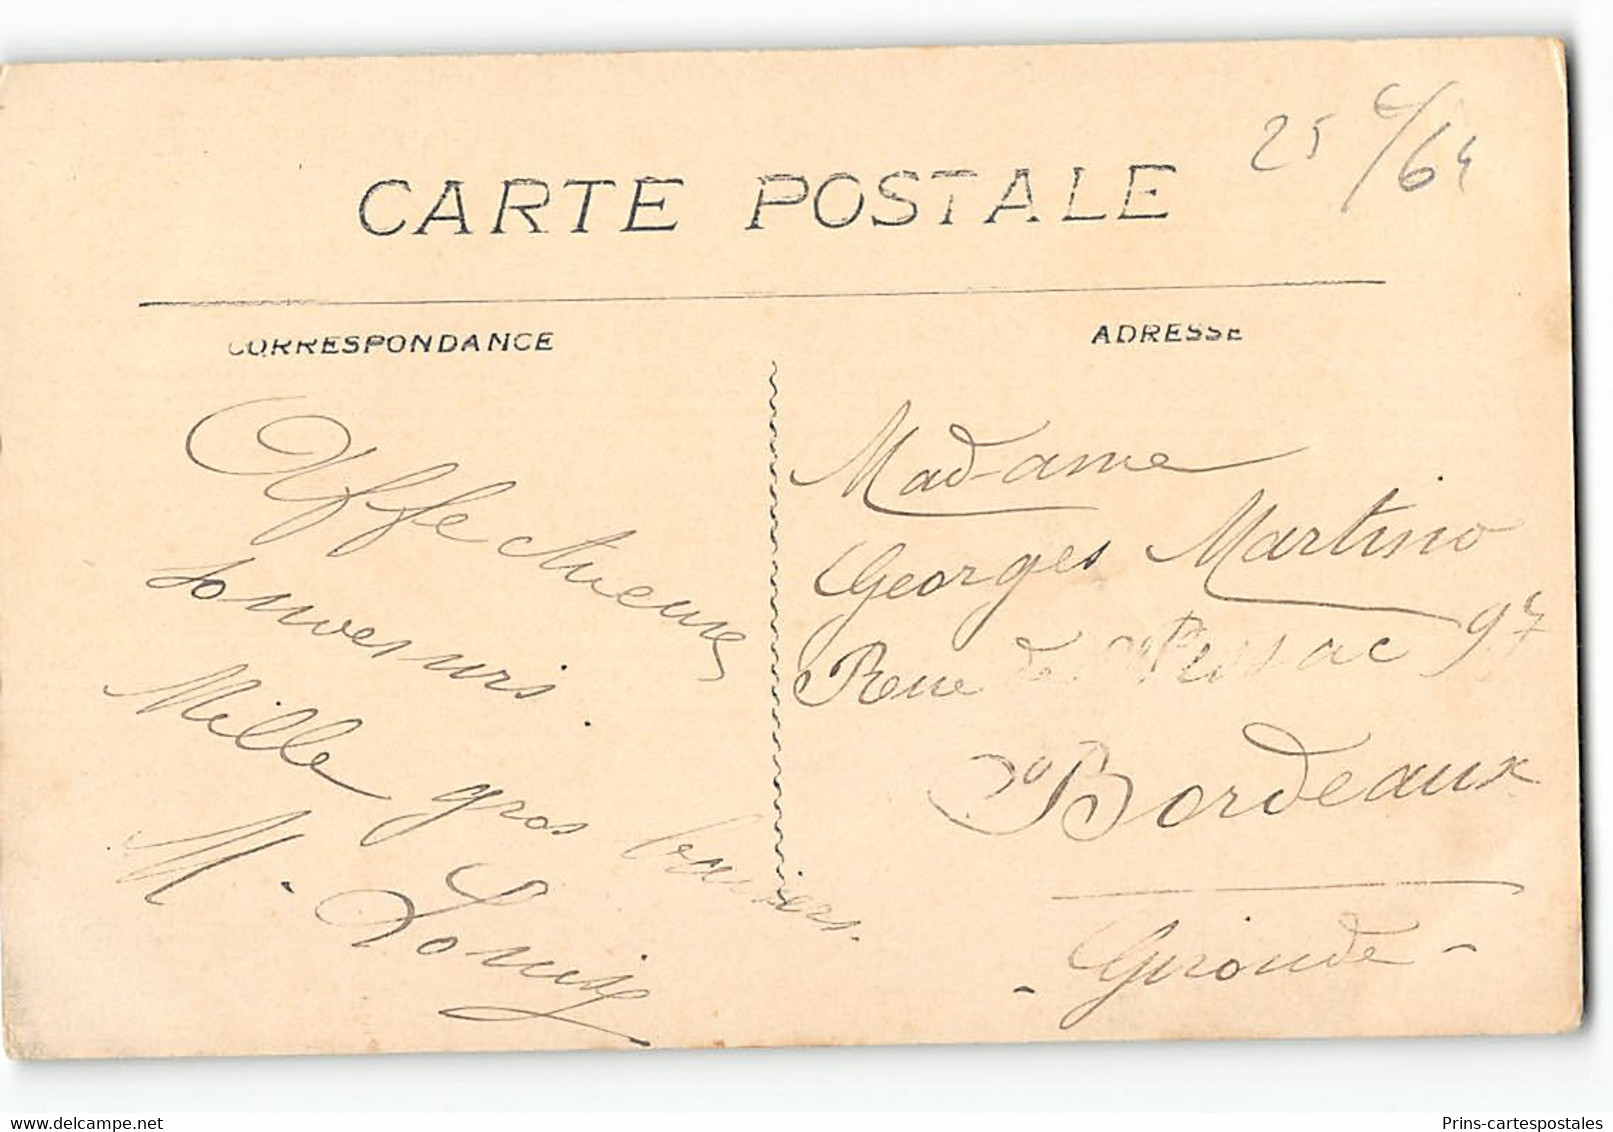 25 c/64
CARTE POSTALE
CORRESPONDANCE
ADRESSE
Affectueux
souvenirs.
Mille gros baisers.
M. Louise
Madame
Georges Martino
Rue de Pessac 97
Bordeaux
- Gironde -
delcampe.net
Prins-cartespostales